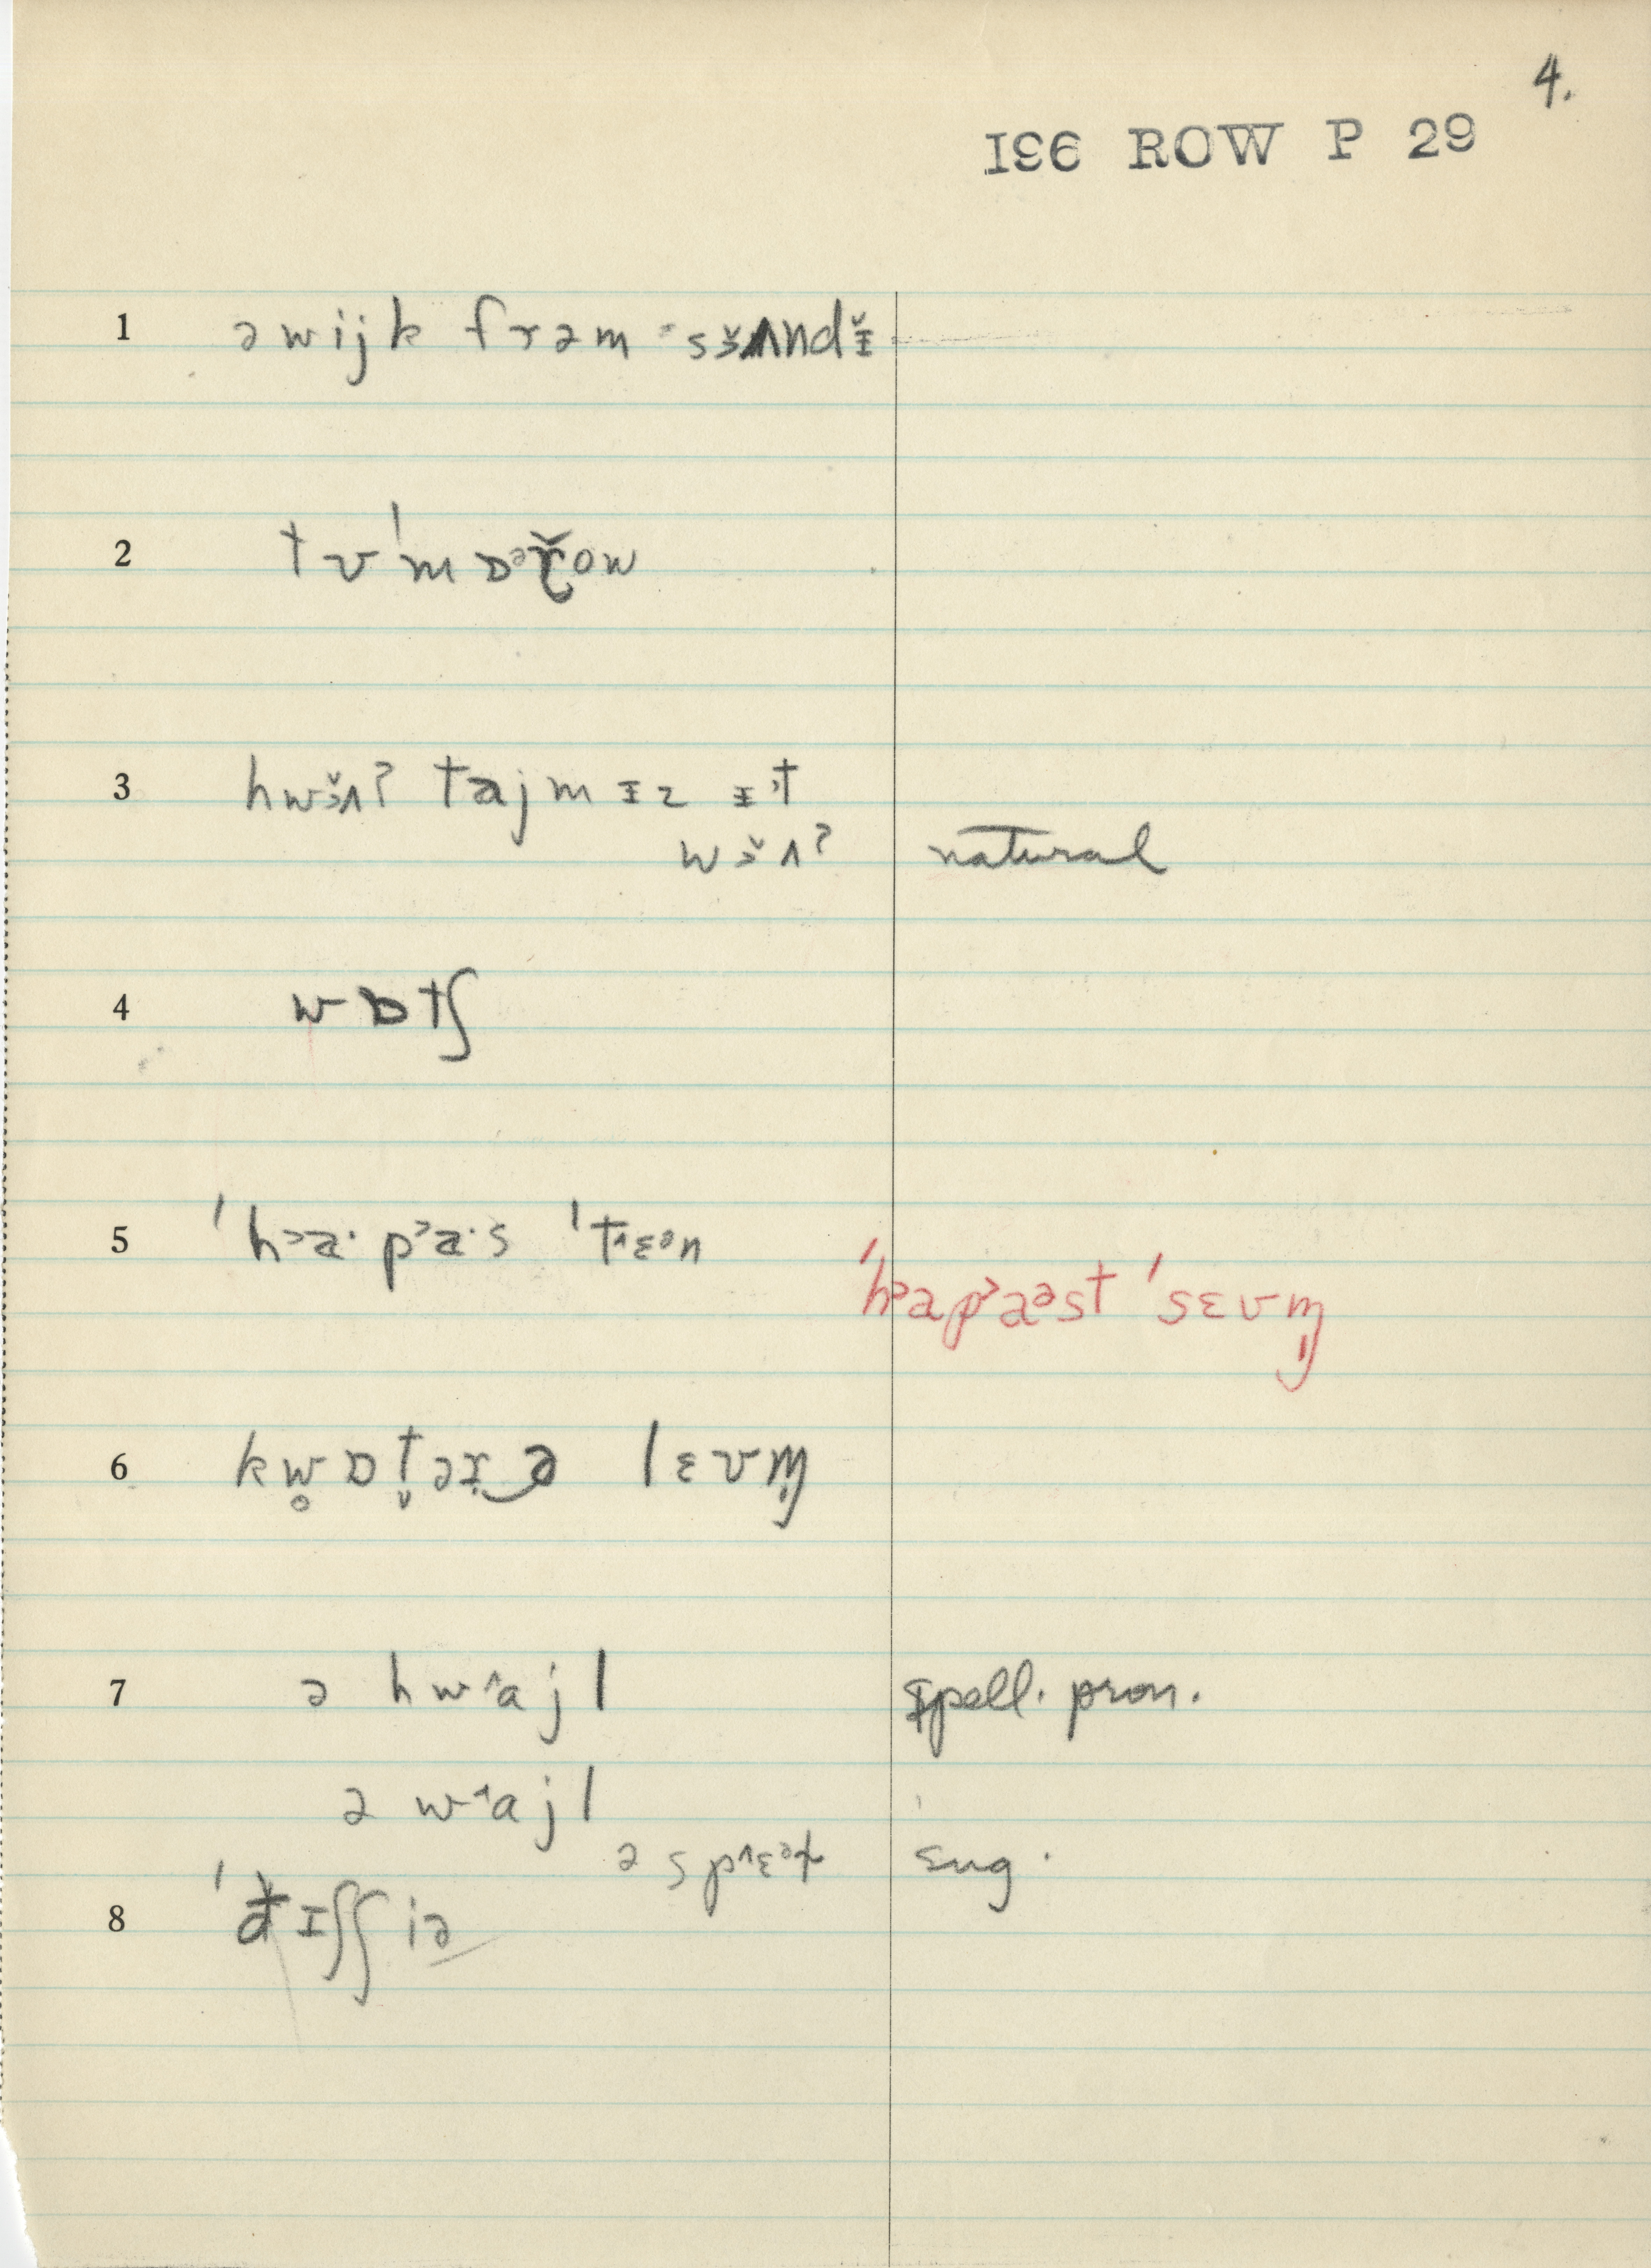 4.
196 ROW P 29
1 ə wijk frəm sɜ̌ʌndɪ̌
2 tʊˈmɒᵊřow
3 hwɜ̌ʌʔ tajm ɪz ɪt
wɜ̌ʌʔ natural
4 wɒtʃ
5 ˈh˃a· p˃a·s ˈt˄ɛᵊn
ˈh˃ap˃aᵊst ˈsɛvm̩
6 kw̥ɒt̬əɹ‿ə lɛvm̩
7 ə hw˄ajl spell. pron.
ə w˄ajl
ə sp˄ɛᵊɫ Eng.
8